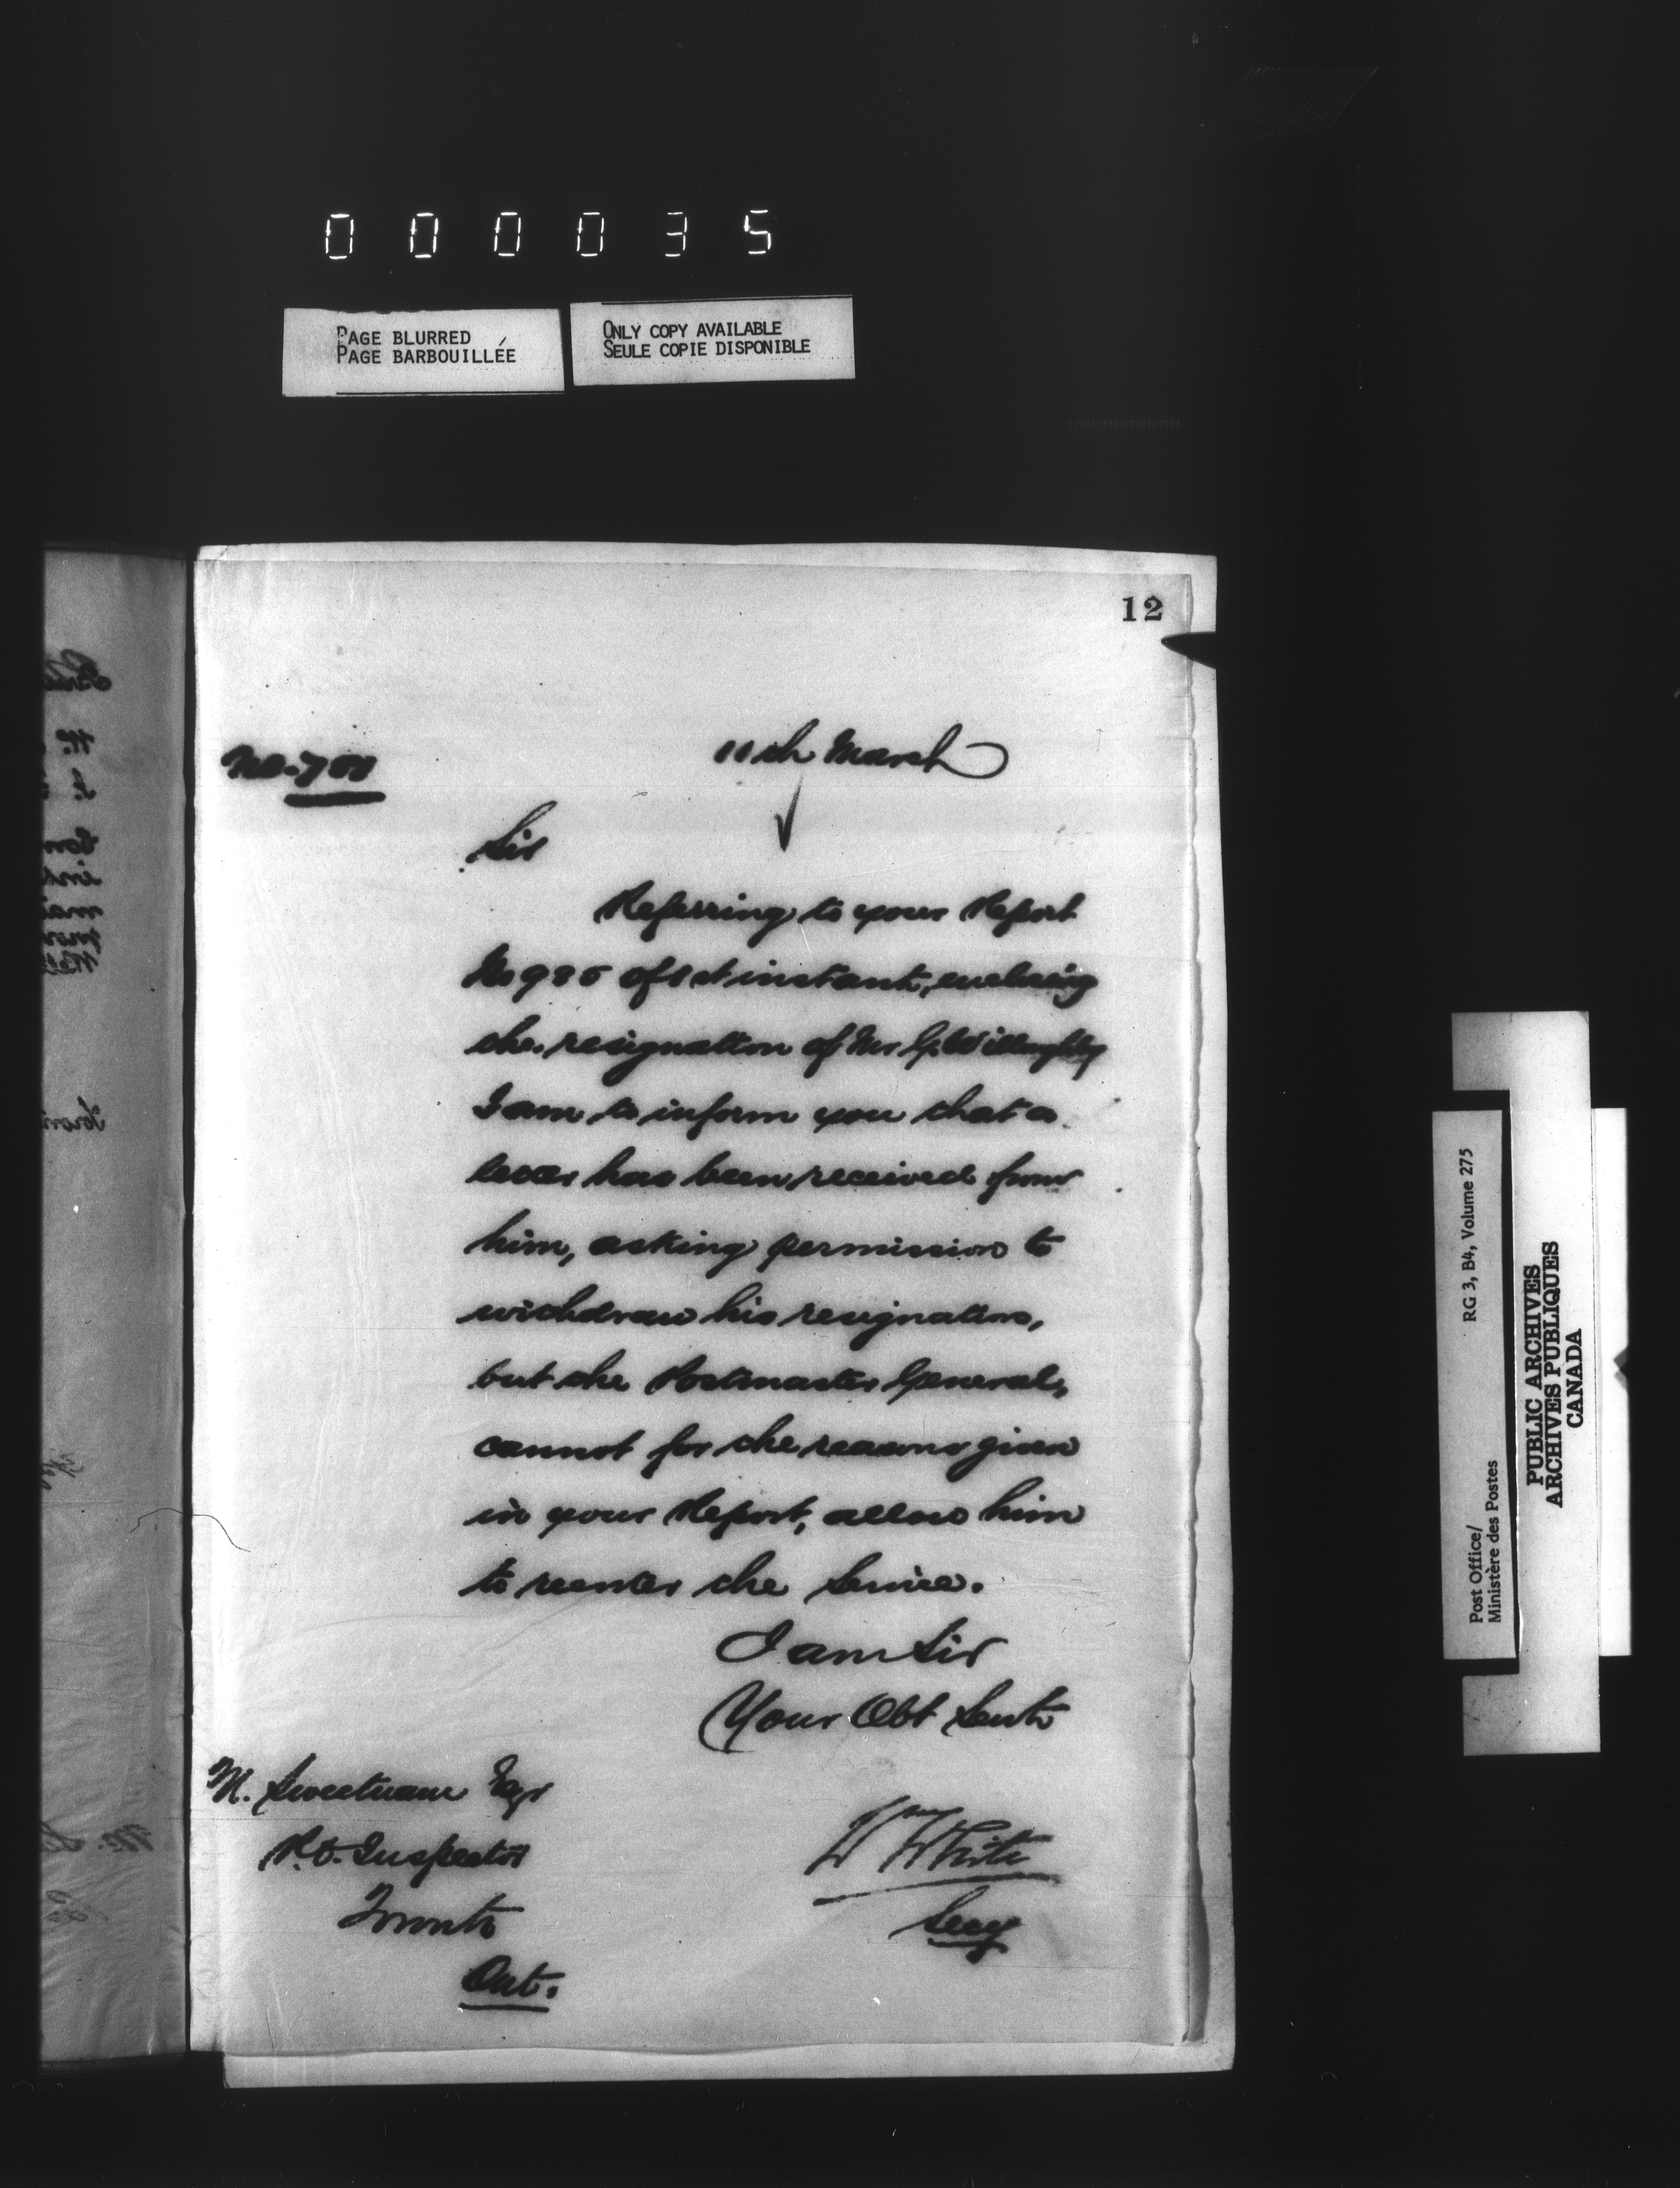 000035
PAGE BLURRED
PAGE BARBOUILLÉE
ONLY COPY AVAILABLE
SEULE COPIE DISPONIBLE
12
No.
11th March
Sir
Referring to your Report
No 985 of 1st instant, enclosing
the resignation of Mr G. Willoughby
I am to inform you that a
letter has been received from
him, asking permission to
withdraw his resignation,
but the Postmaster General,
cannot for the reasons given
in your Report, allow him
to reenter the Service.
I am Sir
Your Obt Servt
M. Sweetnam Esqr
P.O. Inspector
Toronto
Ont.
Wm White
Secy
Post Office/
Ministère des Postes
RG 3, B4, Volume 275
PUBLIC ARCHIVES
ARCHIVES PUBLIQUES
CANADA